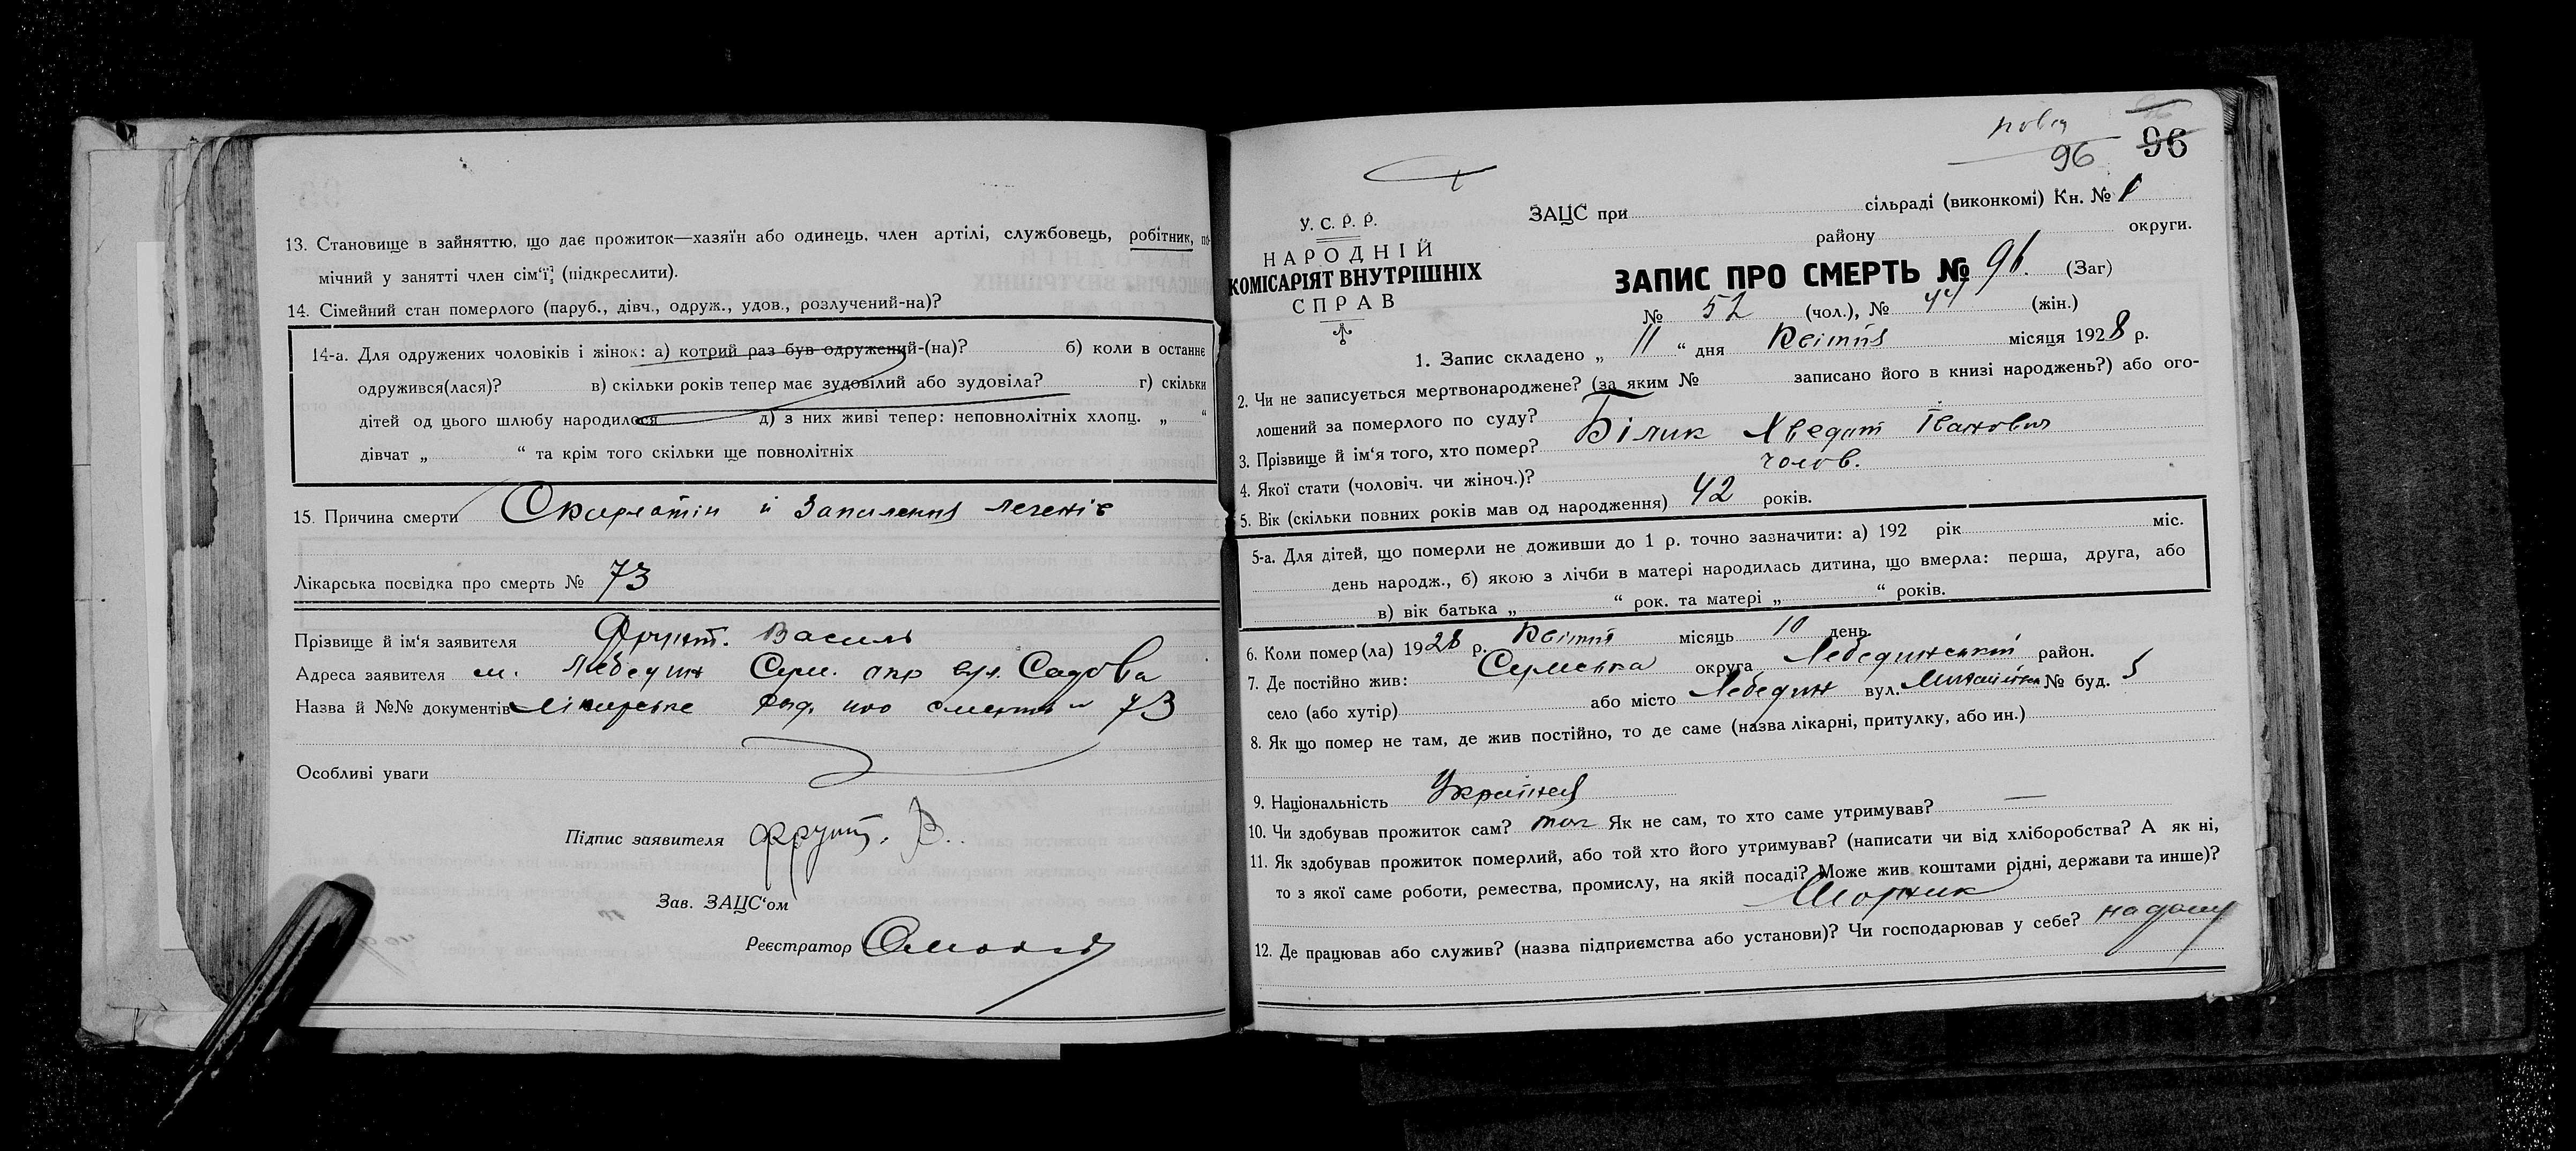 13. Становище в зайняттю, що дає прожиток—хазяїн або одинець, член артілі, службовець, робітник, по-
мічний у занятті член сім'ї, (підкреслити).
14. Сімейний стан померлого (паруб., дівч., одруж., удов., розлучений-на)?
14-а. Для одружених чоловіків і жінок: а) котрий раз був одружений-(на)? б) коли в останнє
одружився(лася)? в) скільки років тепер має зудовілий або зудовіла? г) скільки
дітей од цього шлюбу народилося д) з них живі тепер: неповнолітніх хлопц. „ “
дівчат „ “ та крім того скільки ще повнолітніх
15. Причина смерти Скарлатін й Запалення легенів
Лікарська посвідка про смерть № 73
Прізвище й ім'я заявителя Фрунт. Василь
Адреса заявителя м. Лебедин Сум. окр вул. Садова
Назва й №№ документів Лікарське про смерть № 73
Особливі уваги
Підпис заявителя Фрунт. В.
Зав. ЗАЦС'ом
Реєстратор
96
96
У. С. Р. Р.
НАРОДНІЙ
КОМІСАРІЯТ ВНУТРІШНІХ
СПРАВ
ЗАЦС при сільраді (виконкомі) Кн. № 1
району округи.
ЗАПИС ПРО СМЕРТЬ № 96. (Заг)
№ 52 (чол.), № 44 (жін.)
1. Запис складено „ 11 “ дня Квітня місяця 1928 р.
2. Чи не записується мертвонароджене? (за яким № записано його в книзі народжень?) або ого-
лошений за померлого по суду?
3. Прізвище й ім'я того, хто помер? Білик Хведот Іванович
4. Якої стати (чоловіч. чи жіноч.)? чолов.
5. Вік (скільки повних років мав од народження) 42 років.
5-а. Для дітей, що померли не доживши до 1 р. точно зазначити: а) 192 рік міс.
день народж., б) якою з лічби в матері народилась дитина, що вмерла: перша, друга, або
в) вік батька „ “ рок. та матері „ “ років.
6. Коли помер(ла) 1928 р. Квітня місяць 10 день.
7. Де постійно жив: Сумська округа Лебединський район.
село (або хутір) або місто Лебедин вул. № буд. 5
8. Як що помер не там, де жив постійно, то де саме (назва лікарні, притулку, або ин.)
9. Національність Українец
10. Чи здобував прожиток сам? так Як не сам, то хто саме утримував? —
11. Як здобував прожиток померлий, або той хто його утримував? (написати чи від хліборобства? А як ні,
то з якої саме роботи, ремества, промислу, на якій посаді? Може жив коштами рідні, держави та инше)?
Шорник
12. Де працював або служив? (назва підприємства або установи)? Чи господарював у себе? на дому